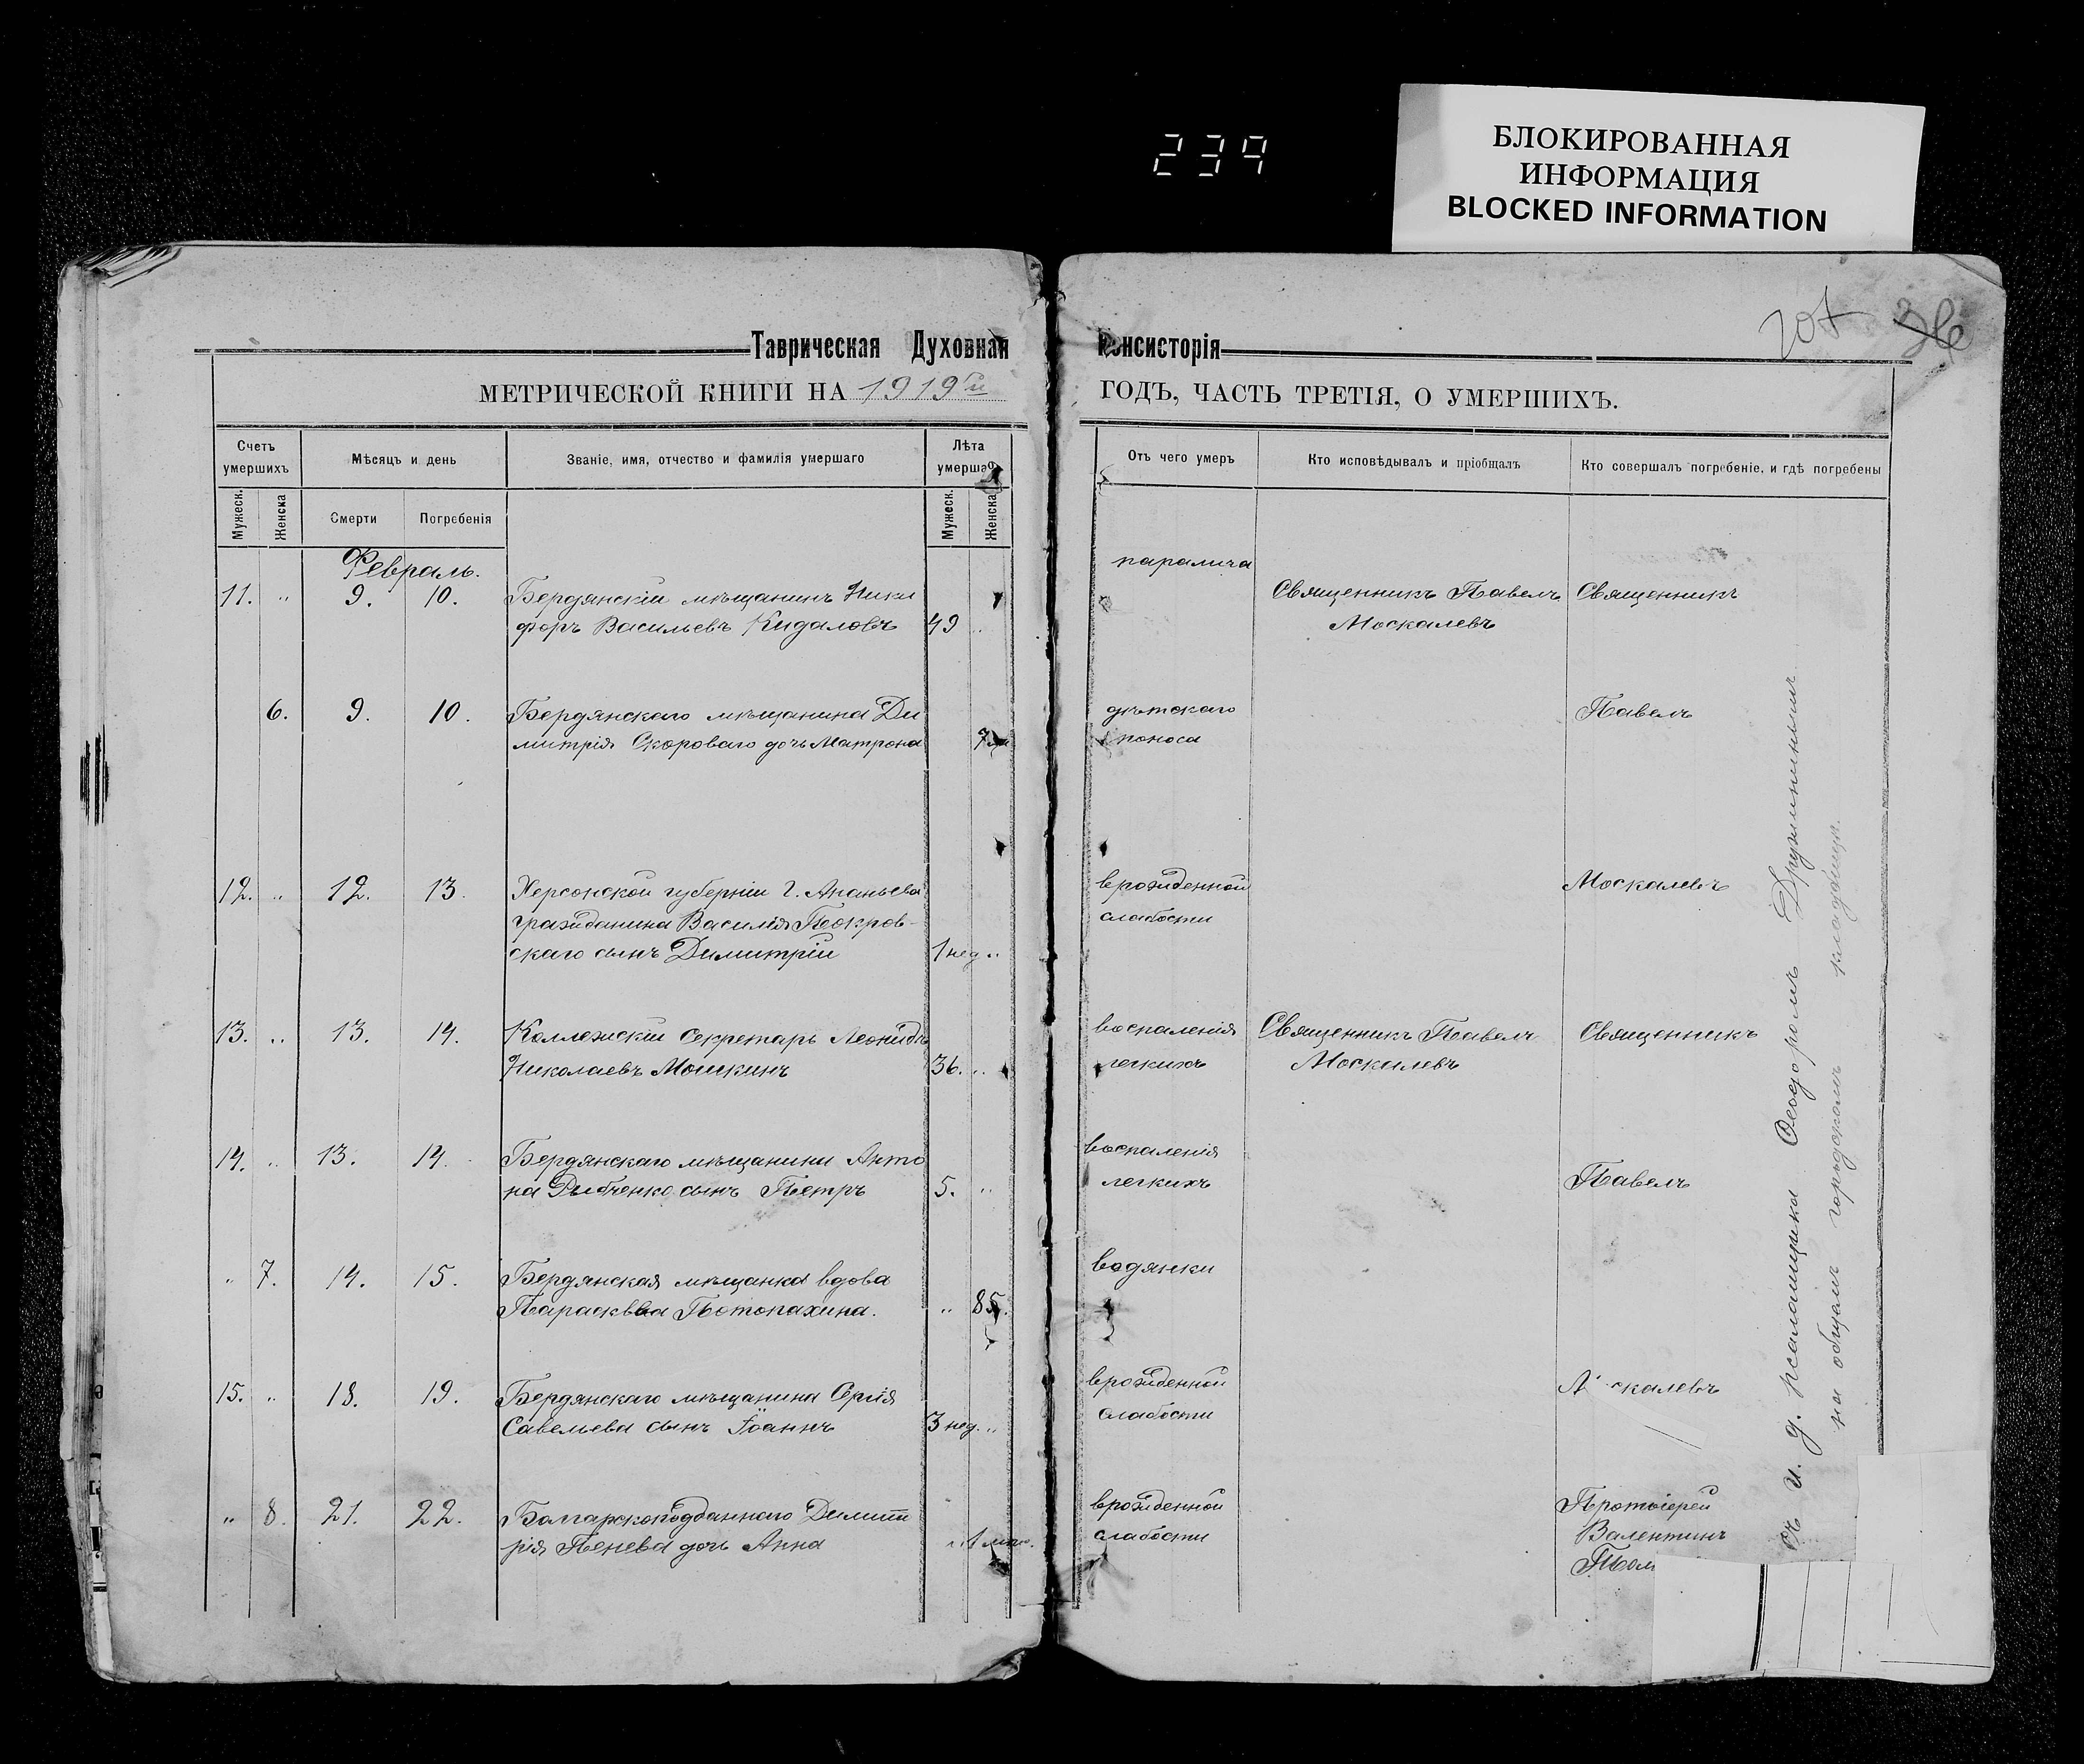 239
БЛОКИРОВАННАЯ
ИНФОРМАЦИЯ
BLOCKED INFORMATION
207 36
Таврическая Духовная Консисторія
МЕТРИЧЕСКОЙ КНИГИ НА 1919й ГОДЪ, ЧАСТЬ ТРЕТІЯ, О УМЕРШИХЪ.
Счетъ умершихъ
Мѣсяцъ и день
Званіе, имя, отчество и фамилія умершаго
Лѣта умершаго
Отъ чего умеръ
Кто исповѣдывалъ и пріобщалъ
Кто совершалъ погребеніе, и гдѣ погребены
Мужеск. Женска Смерти Погребенія Мужеск. Женска
Февраль.
11. " 9. 10. Бердянскій мѣщанинъ Ники
форъ Васильевъ Кидаловъ 49 "
паралича
Священникъ Павелъ
Москалевъ
Священникъ
6. 9. 10. Бердянскаго мѣщанина Ди
митрія Скороваго дочь Матрона 7
дѣтскаго
поноса
Павелъ
12. " 12. 13. Херсонской губерніи г. Ананьева
гражданина Василія Покров-
скаго сынъ Димитрій 1 нед "
врожденной
слабости
Москалевъ
13. " 13. 14. Коллежскій Секретарь Леонидъ
Николаевъ Мошкинъ 36. "
воспаленія
легкихъ
Священникъ Павелъ
Москалевъ
Священникъ
14. " 13. 14. Бердянскаго мѣщанина Анто
на Рыбченко сынъ Петръ 5. "
воспаленія
легкихъ
Павелъ
" 7. 14. 15. Бердянская мѣщанка вдова
Параскева Потопахина. " 85.
водянки
15. " 18. 19. Бердянскаго мѣщанина Сергія
Савельева сынъ Іоаннъ 3 нед. "
врожденной
слабости
М скалевъ
" 8. 21. 22. Болгарскоподданнаго Димит
рія Пенева дочь Анна " 1 мѣс.
врожденной
слабости
Протоіерей
Валентинъ
съ и. д. псаломщика Ѳеодоромъ Дружининымъ
на общемъ городскомъ кладбищѣ.